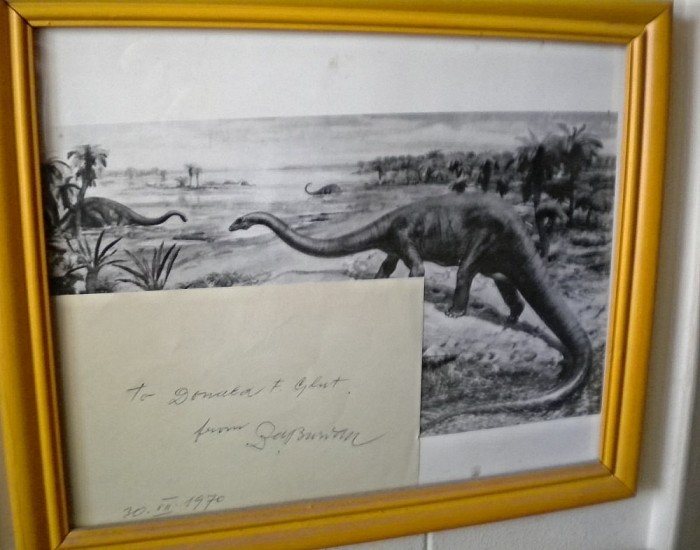 To Donald F. Glut.
from ZdBurian
30. VII. 1970